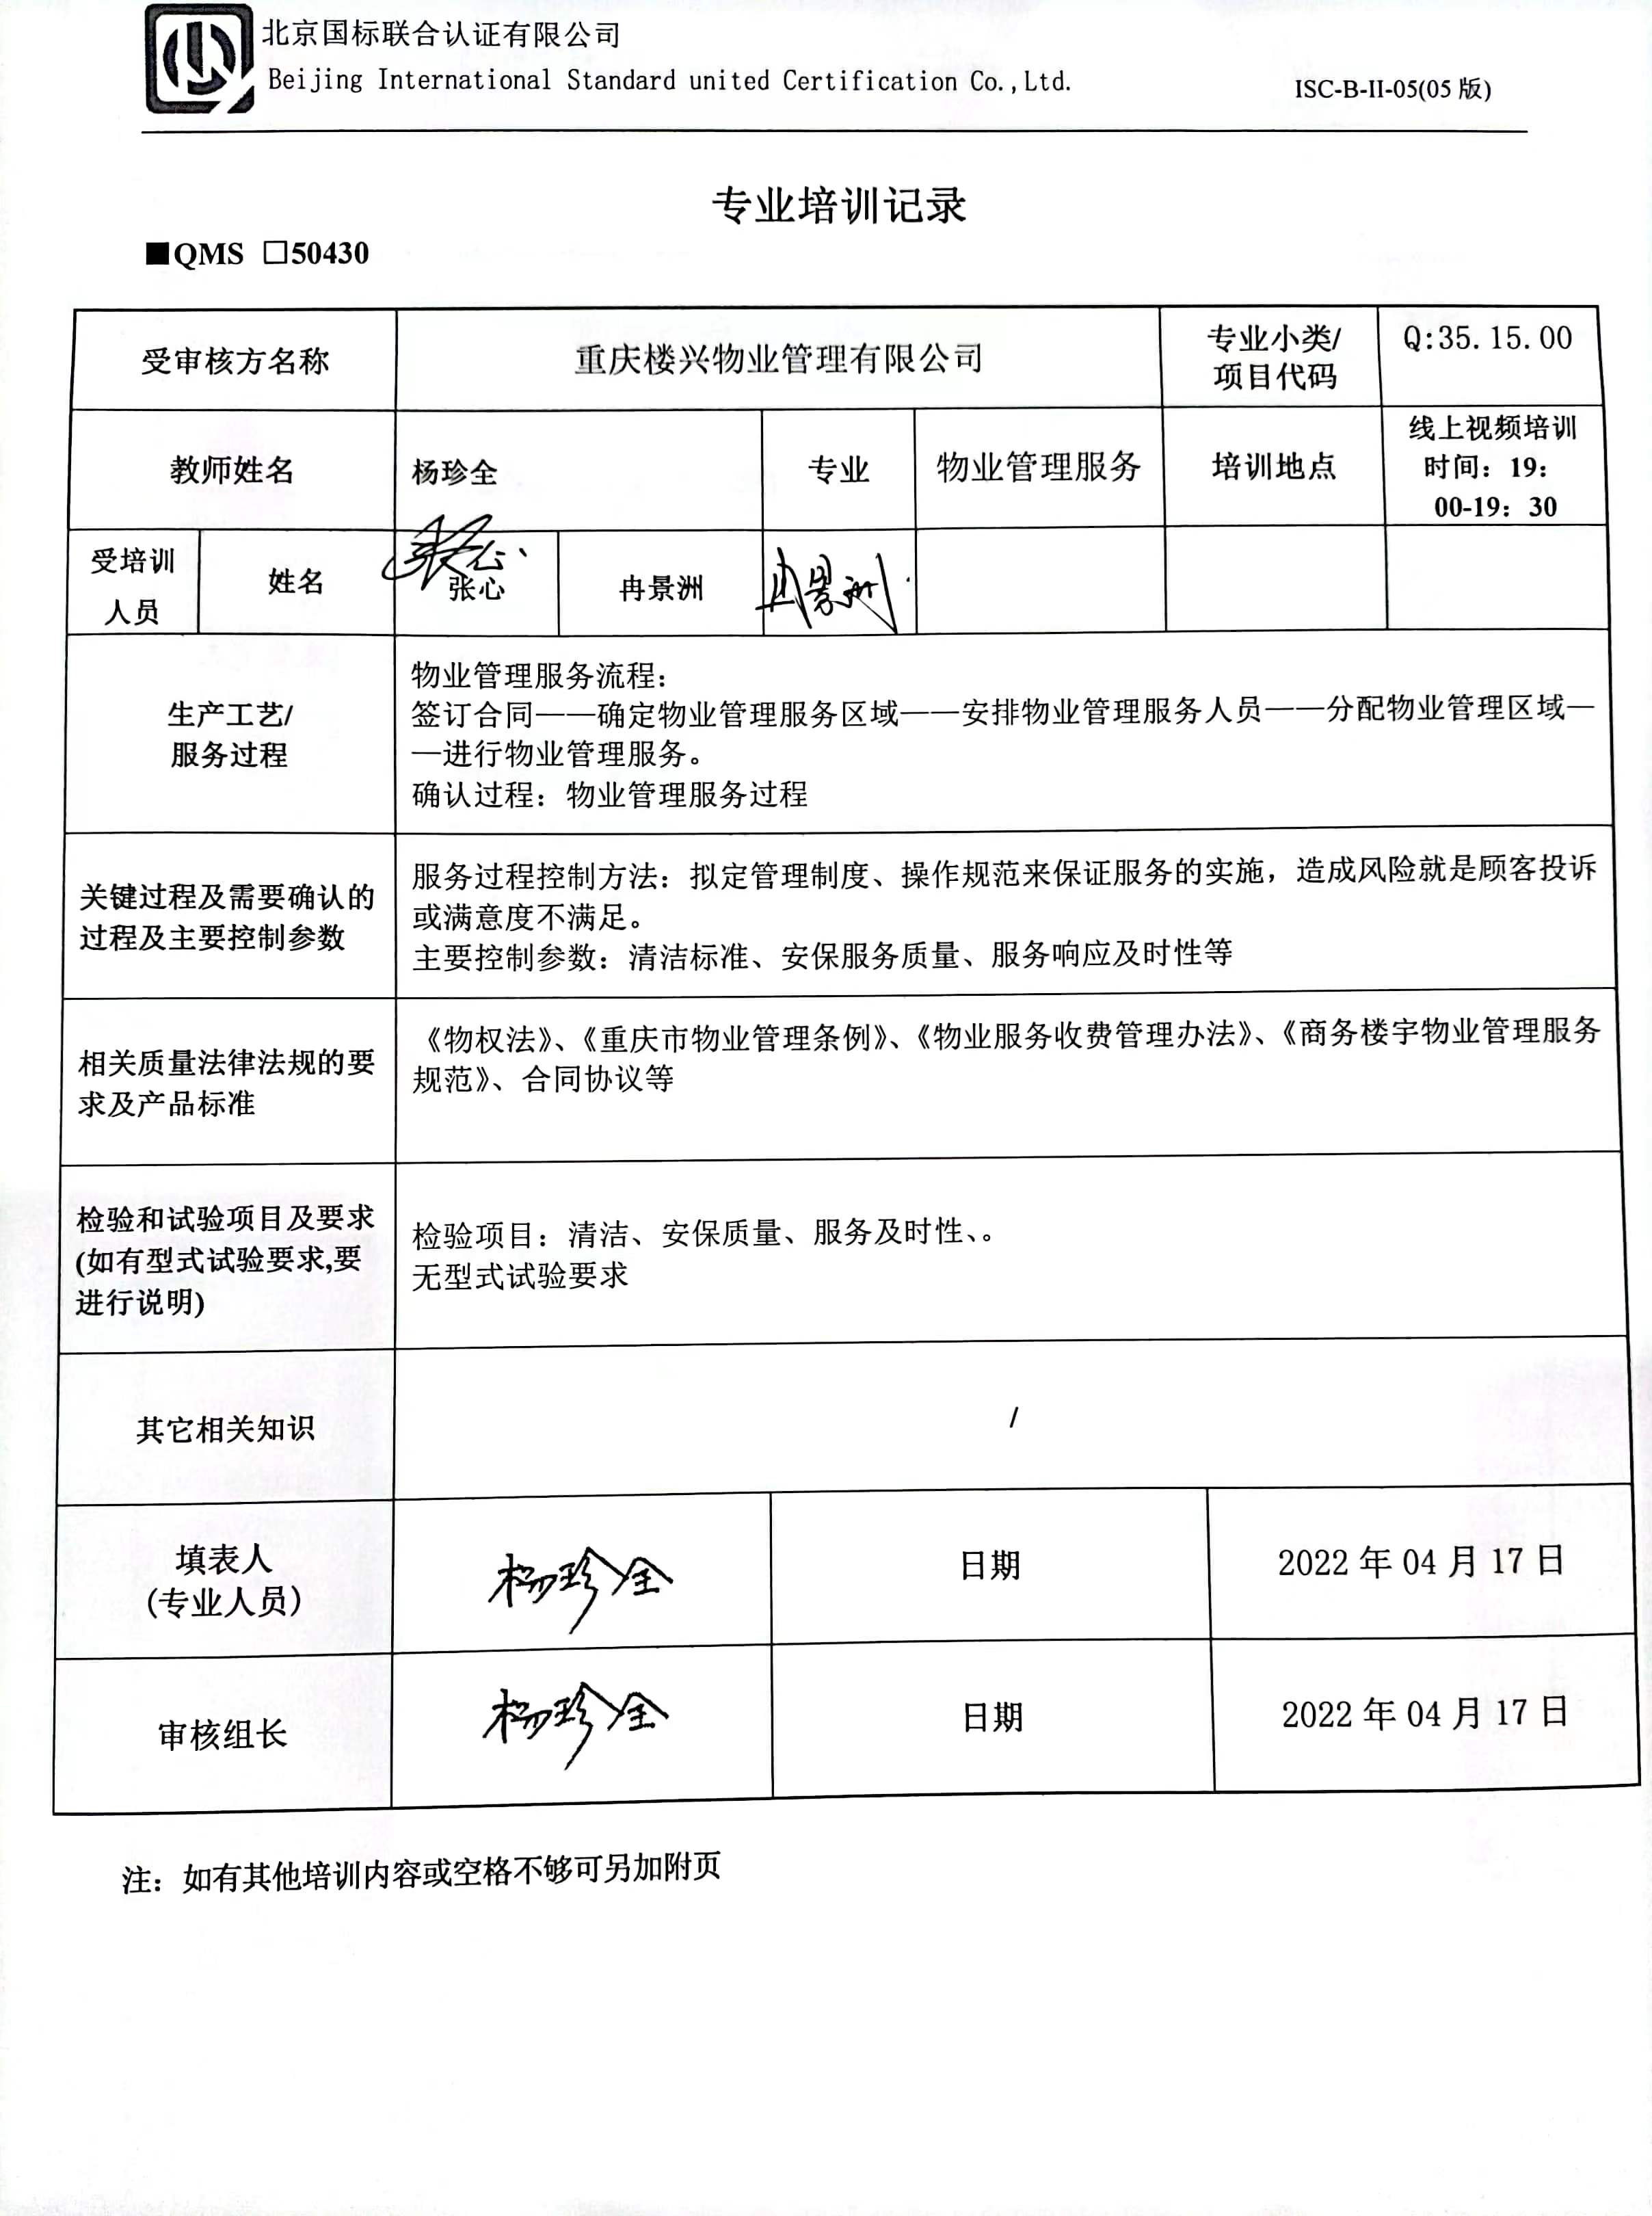 北京国标联合认证有限公司
Beijing International Standard united Certification Co.,Ltd.
ISC-B-II-05(05 版)
专业培训记录
■QMS □50430
受审核方名称
重庆楼兴物业管理有限公司
专业小类/
项目代码
Q:35.15.00
教师姓名
杨珍全
专业
物业管理服务
培训地点
线上视频培训
时间：19：
00-19：30
受培训
人员
姓名
张心
张心
冉景洲
冉景洲
生产工艺/
服务过程
物业管理服务流程：
签订合同——确定物业管理服务区域——安排物业管理服务人员——分配物业管理区域—
—进行物业管理服务。
确认过程：物业管理服务过程
关键过程及需要确认的
过程及主要控制参数
服务过程控制方法：拟定管理制度、操作规范来保证服务的实施，造成风险就是顾客投诉
或满意度不满足。
主要控制参数：清洁标准、安保服务质量、服务响应及时性等
相关质量法律法规的要
求及产品标准
《物权法》、《重庆市物业管理条例》、《物业服务收费管理办法》、《商务楼宇物业管理服务
规范》、合同协议等
检验和试验项目及要求
(如有型式试验要求,要
进行说明)
检验项目：清洁、安保质量、服务及时性、。
无型式试验要求
其它相关知识
/
填表人
（专业人员）
杨珍全
日期
2022 年 04 月 17 日
审核组长
杨珍全
日期
2022 年 04 月 17 日
注：如有其他培训内容或空格不够可另加附页